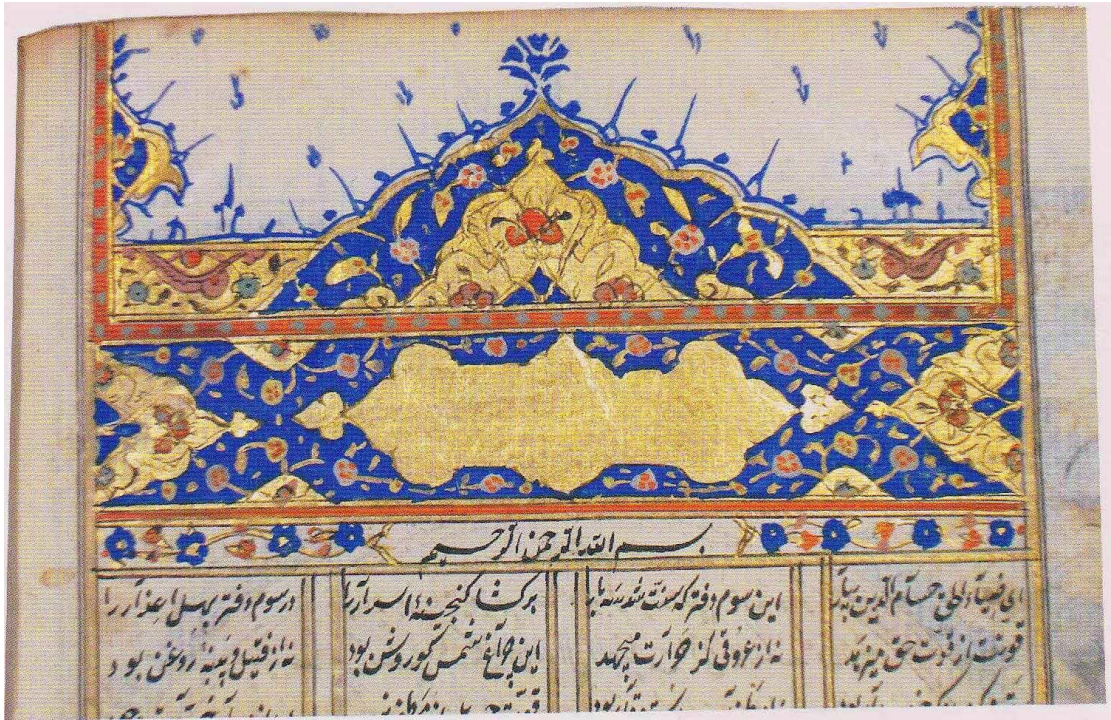 بسم الله الرحمن الرحیم
ای ضیاء الحق حسام الدین بیار این سوم دفتر که سنت شد سه بار بر گشا گنجینهٔ اسرار را در سوم دفتر بهل اعذار را
قوتت از قوت حق میزهد نه از عروقی کز حرارت میجهد این چراغ شمس کو روشن بود نه از فتیل و پنبه و روغن بود